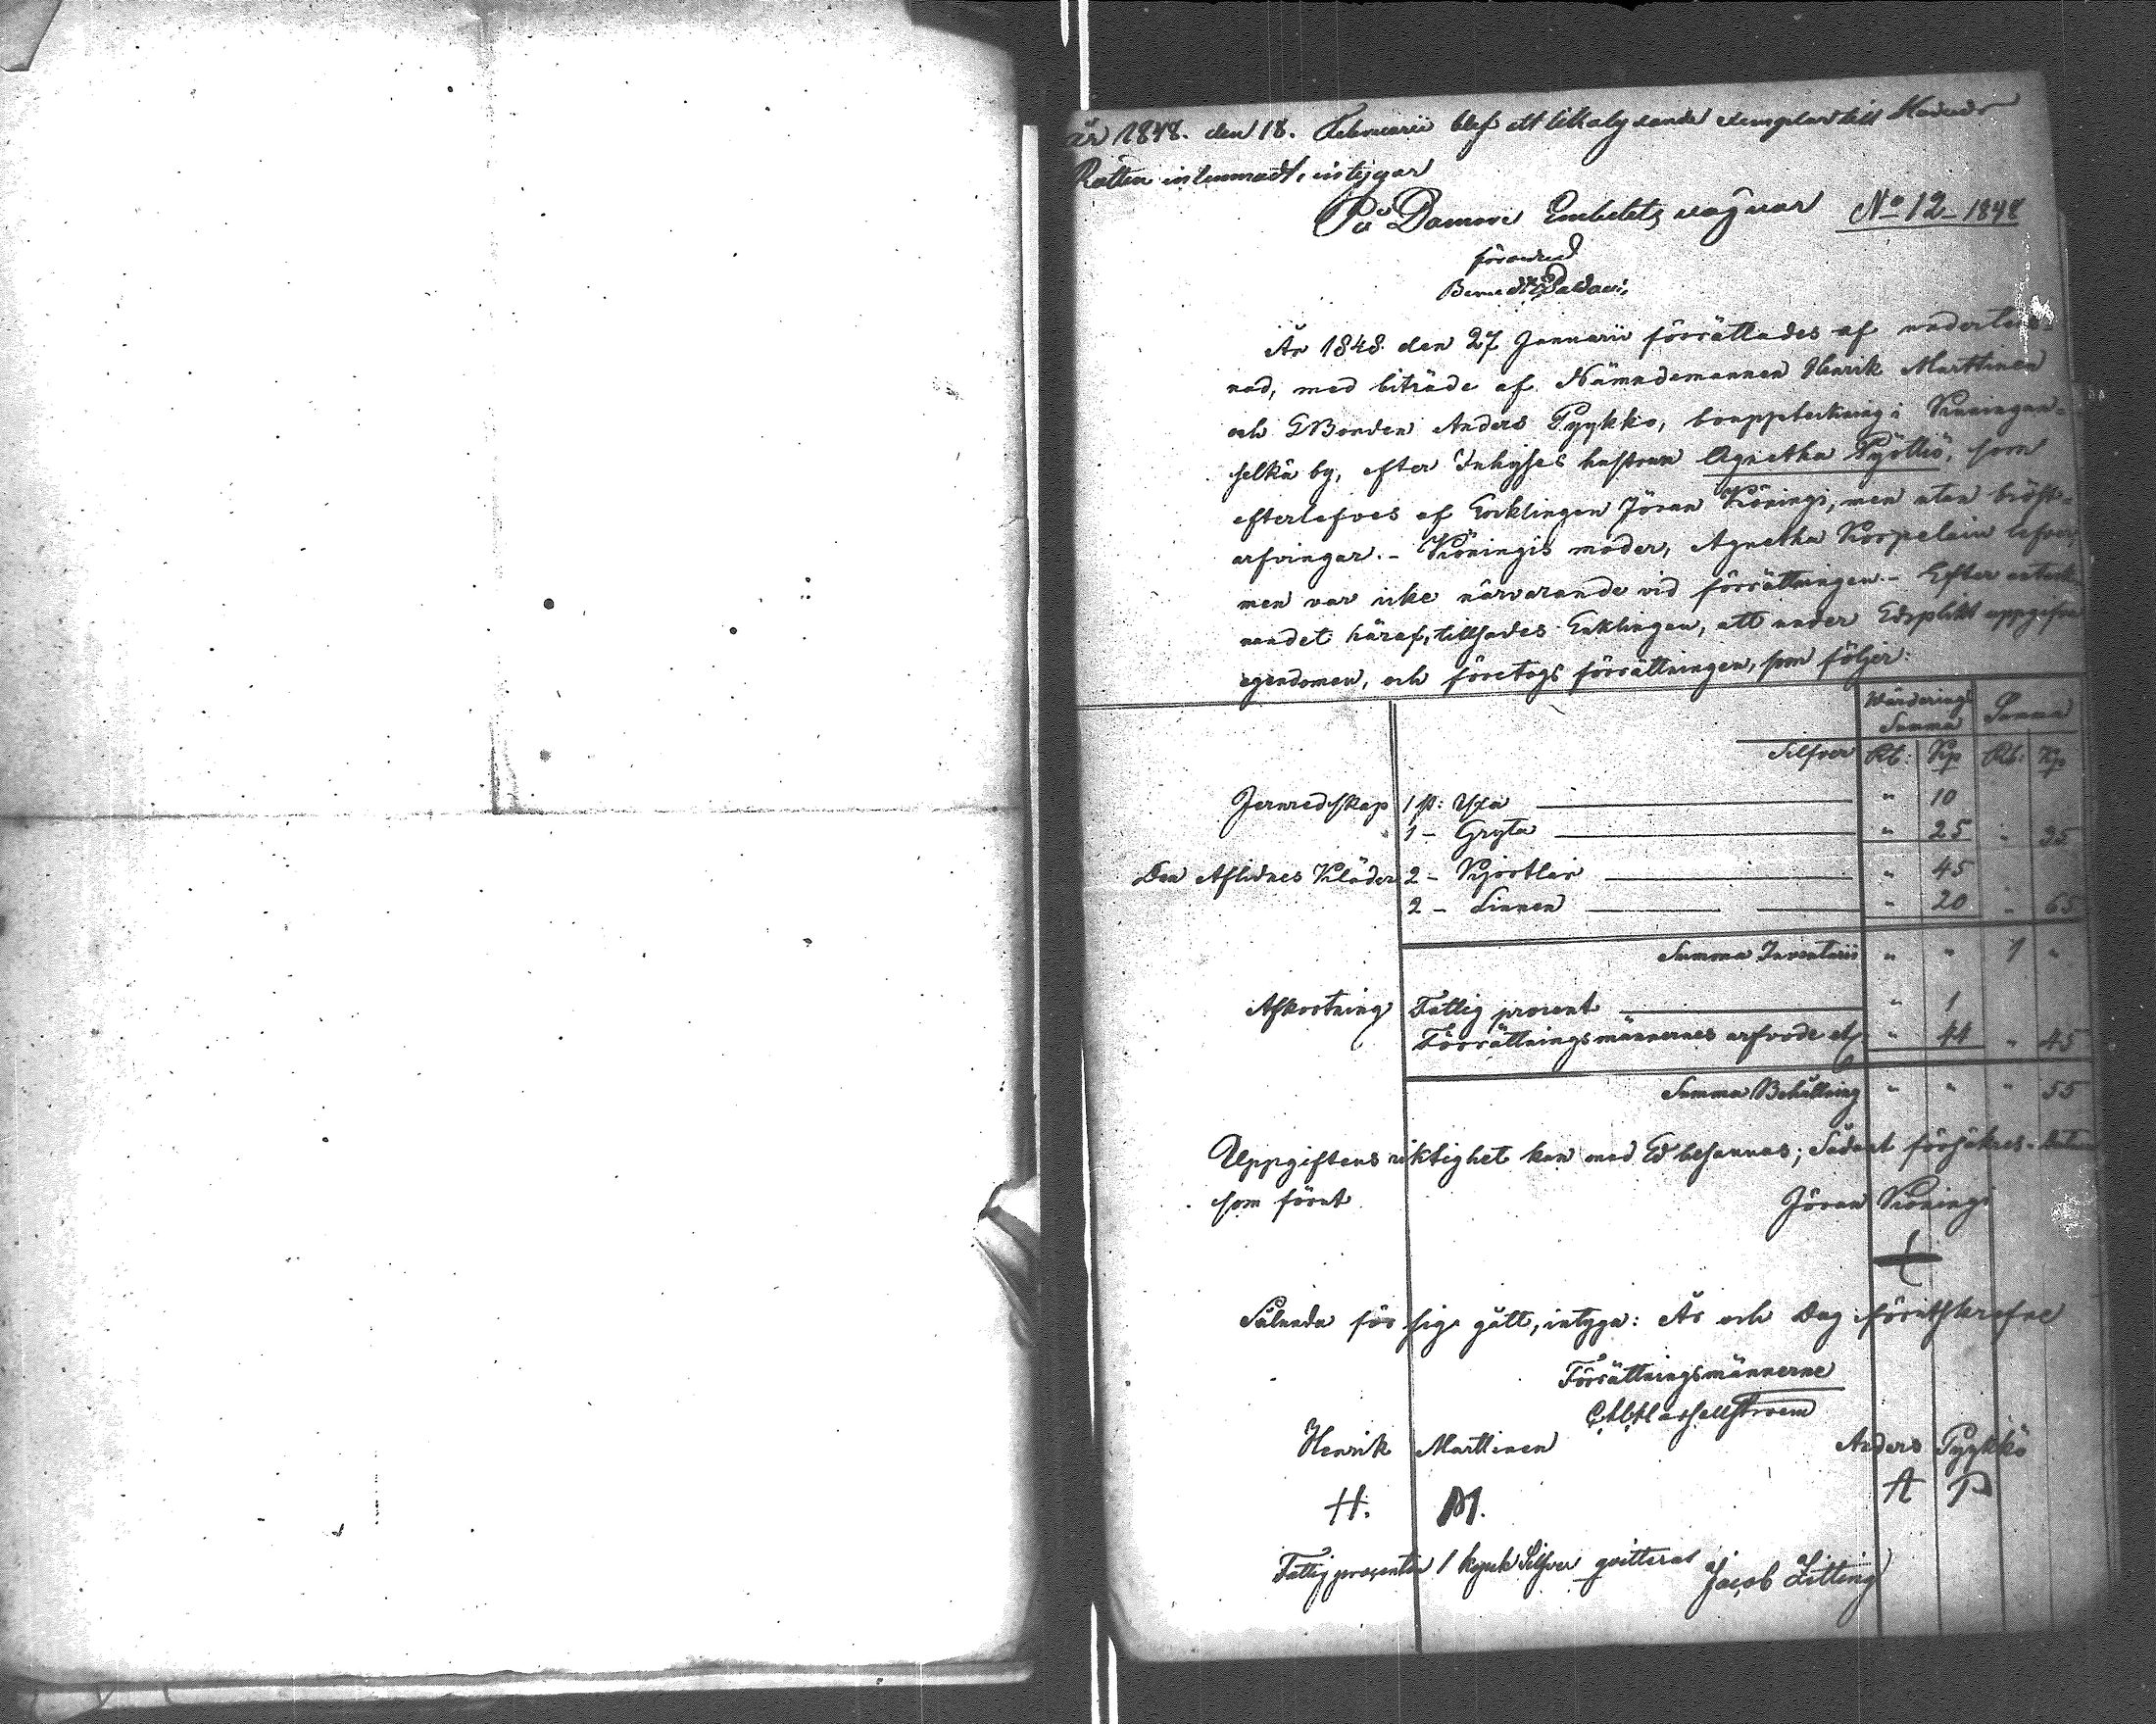 år 1848. den 18. Februarii blef ett lika lydande exemplar till Härads
Rätten inlemnadt, intygar
På Domare Embetets vägnar No 12– 1848
förordnad
År 1848 den 27 Januarii förrättades af underteck-
nad, med biträde af Nämndemannen Henrik Marttinen
och Bonden Anders Pyykkö, bouppteckning i Kuningan-
selkä by, efter Inhyses hustrun Agnetha Pyöttiö, som
efterlefves af Encklingen Jöran Köningi, men utan bröst-
arfvingar. – Köningis moder, Agnetha Korpelain lefver,
men var icke närvarande vid förrättningen – Efter anteck-
nandet häraf, tillsades Enklingen, att under Edsplikt uppgifva
egendomen, och företogs förrättningen, som följer:
Värderings Summa Summa
Silfver Rb: Kp Rb: Kp
Jernredskap 1 st: Yxa " 10
1 – Gryta " 25 " 35
Den Aflidnes Kläder 2 – Kjortlar " 45
2 – Linnen " 20 " 65
Summa Inventarii " " 1 "
Afkortning Fattig procent " 1
Förrättningsmännernes arfvode " 44 " 45
Summa Behållning " " " 55
Uppgiftens riktighet kan med Ed besannas; Sådant försäkras.
som förut Jöran Köningi
Sålunda för sig gått, intyga: År och Dag förutskrefne
Förrättningsmännerne
Henrik Marttinen Anders Pyykkö
H. M. A P
Fattigprocenten 1 kopek Silfver qvitteras Jacob Zitting